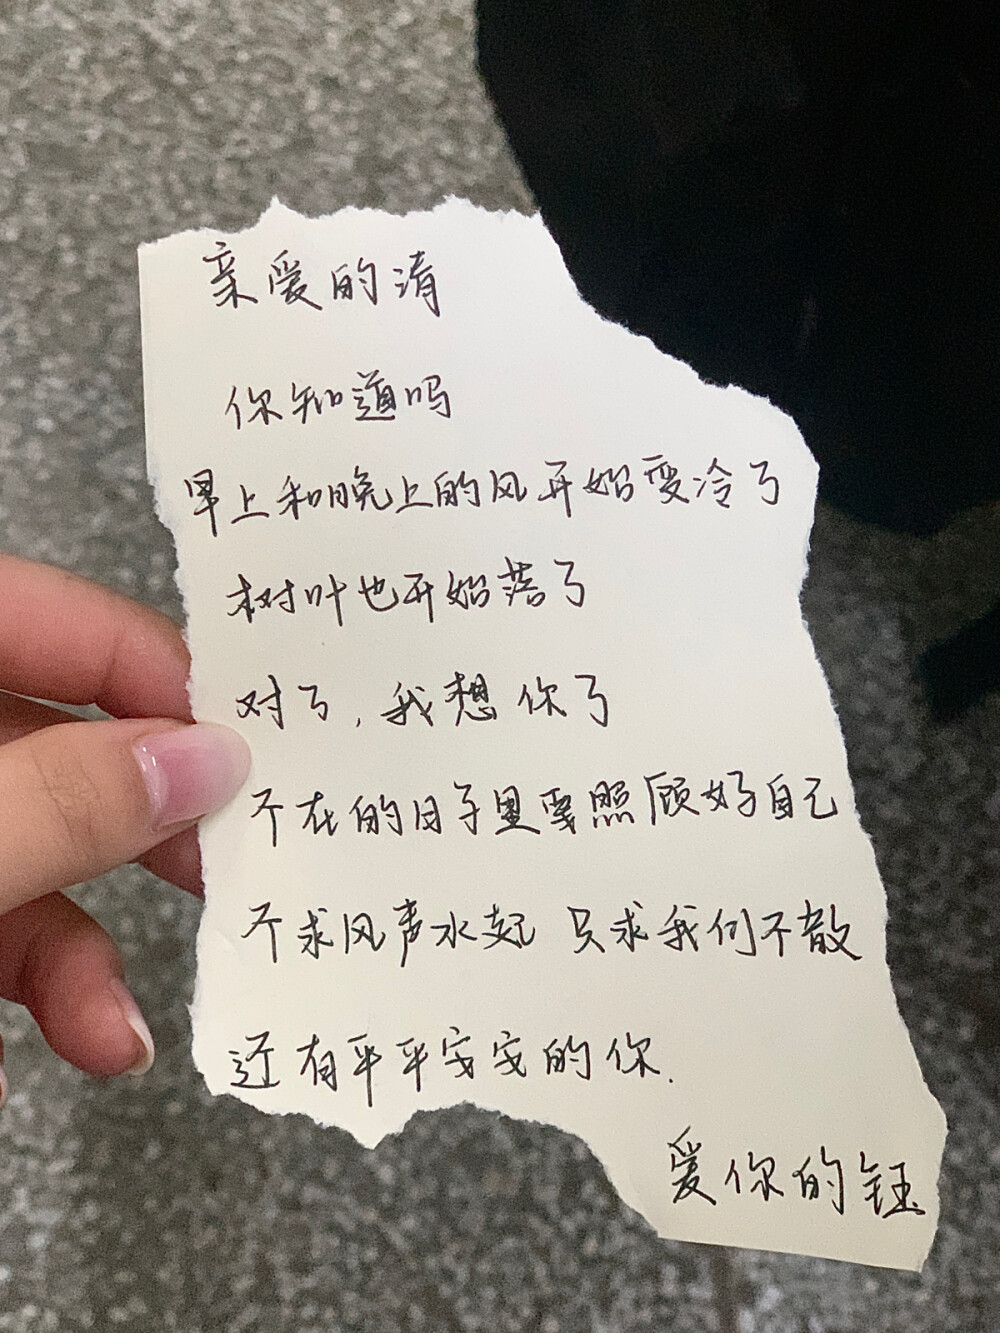 亲爱的清
你知道吗
早上和晚上的风开始变冷了
树叶也开始落了
对了,我想你了
不在的日子里要照顾好自己
不求风声水起 只求我们不散
还有平平安安的你.
爱你的钰